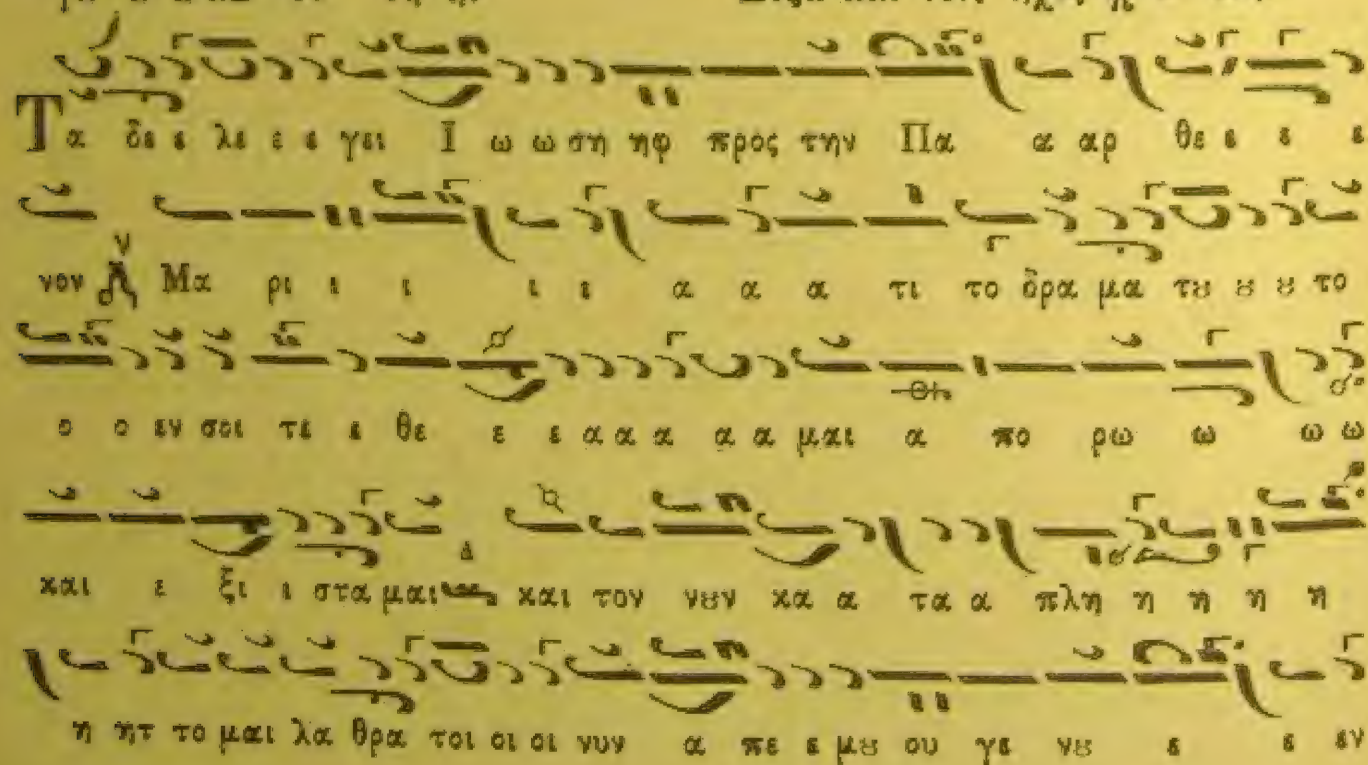 Τα δε ε λε ε ε γει Ι ω ω ση ηφ προς την Πα α αρ θε ε ε ε
νον Μα ρι ι ι ι ι α α α τι το δρα μα τȣ ȣ ȣ το
ο ο εν σοι τε ε θε ε ε α α α α α μαι α πο ρω ω ω ω
και ε ξι ι στα μαι και τον νȣν κα α τα α πλη η η η η
η ητ το μαι λα θρα τοι οι οι νυν α πε ε μȣ ου γε νȣ ε ε εν